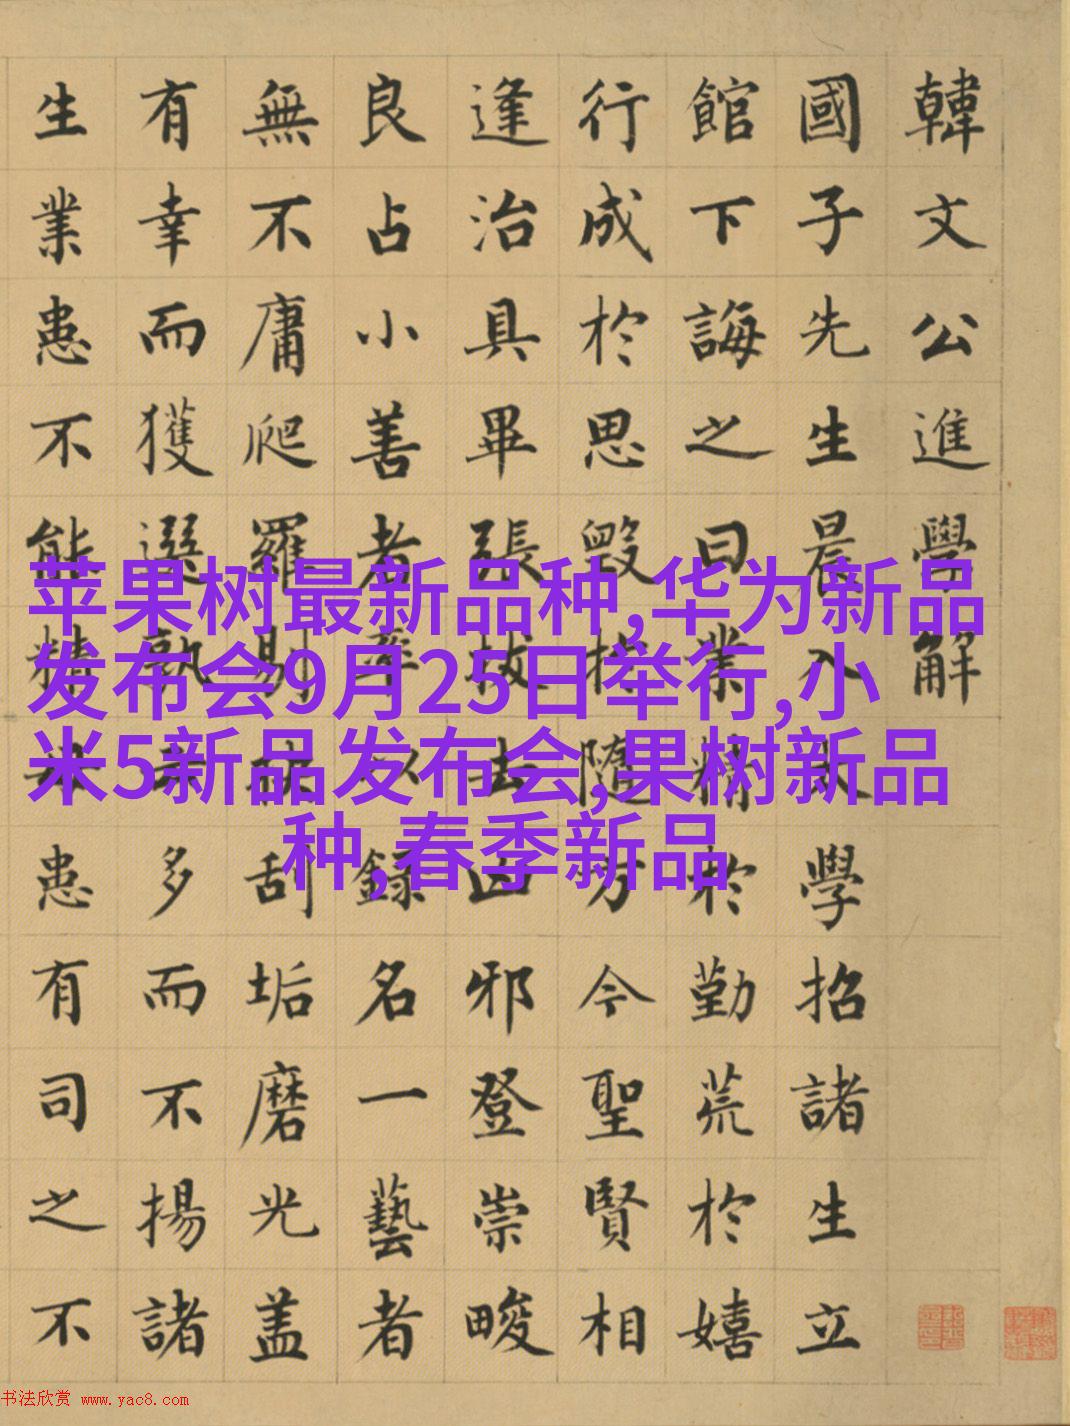 韓文公進學解
國子先生晨入太學招諸生立
館下誨之曰業精於勤荒於嬉
行成於思毀於隨方今聖賢相
逢治具畢張拔去凶邪登崇畯
良占小善者率以錄名一藝者
無不庸爬羅剔抉刮垢磨光盖
有幸而獲選孰云多而不揚諸
生業患不能精患有司之不
苹果树最新品种,华为新品
发布会9月25日举行,小
米5新品发布会,果树新品
种,春季新品
书法欣赏 www.yac8.com